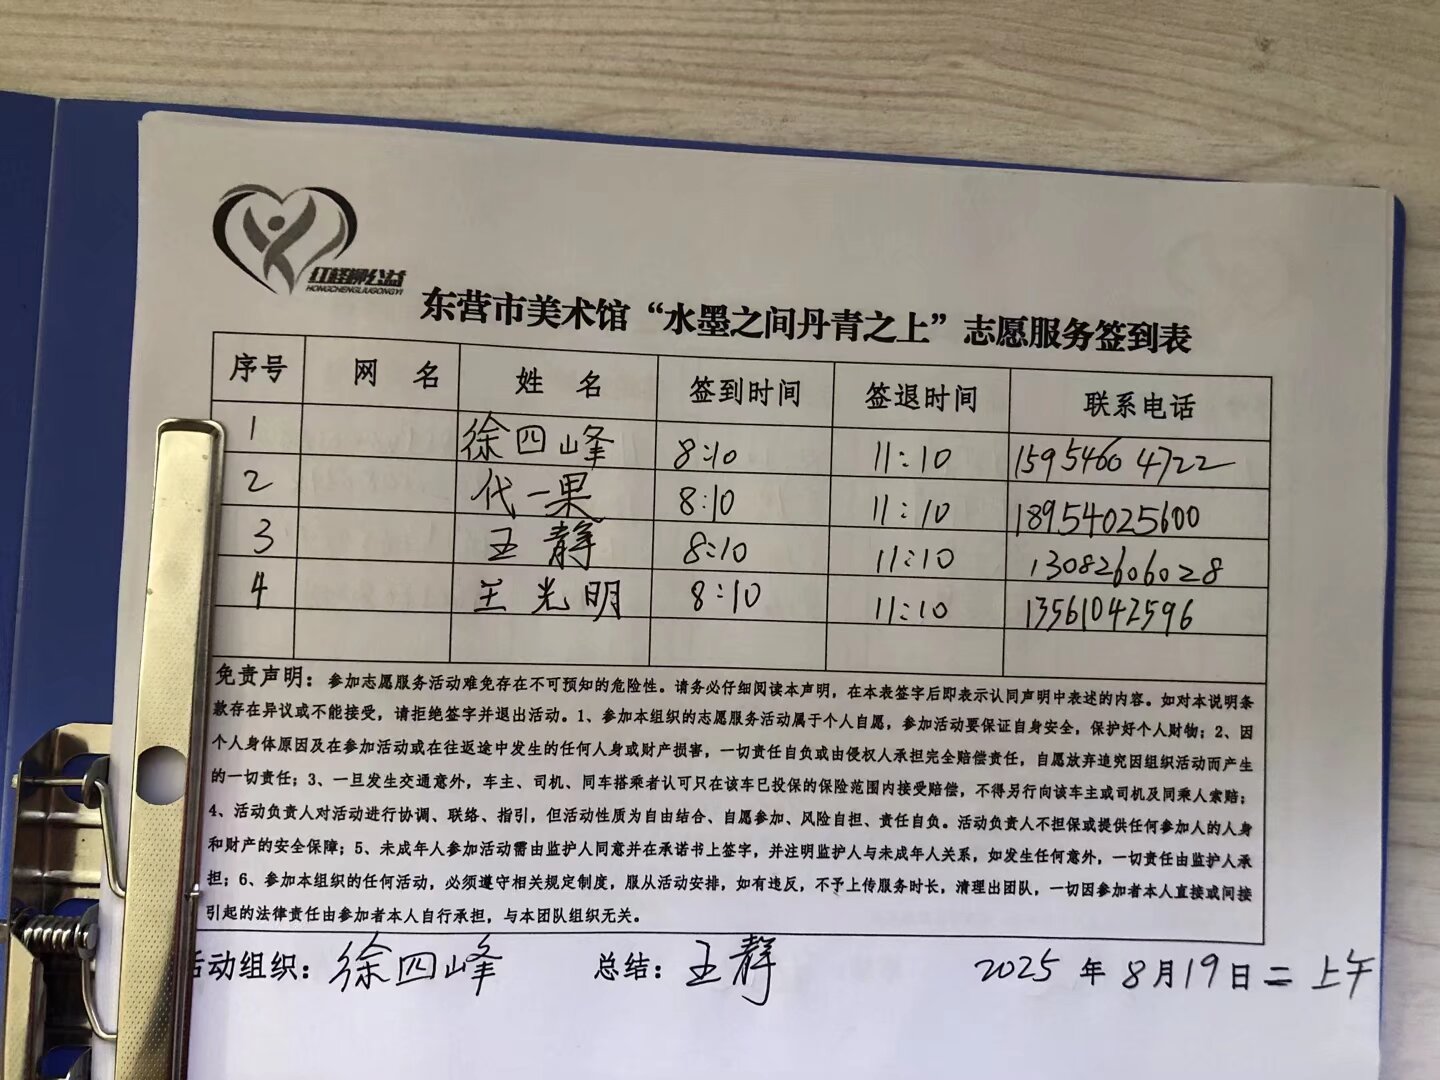 红柽柳公益
HONGCHENGLIUGONGYI
东营市美术馆“水墨之间丹青之上”志愿服务签到表
序号 网 名 姓 名 签到时间 签退时间 联系电话
1 徐四峰 8:10 11:10 15954604722
2 代一果 8:10 11:10 18954025600
3 王静 8:10 11:10 13082606028
4 王光明 8:10 11:10 13561042596
免责声明：参加志愿服务活动难免存在不可预知的危险性。请务必仔细阅读本声明，在本表签字后即表示认同声明中表述的内容。如对本说明条
款存在异议或不能接受，请拒绝签字并退出活动。1、参加本组织的志愿服务活动属于个人自愿，参加活动要保证自身安全，保护好个人财物；2、因
个人身体原因及在参加活动或在往返途中发生的任何人身或财产损害，一切责任自负或由侵权人承担完全赔偿责任，自愿放弃追究因组织活动而产生
的一切责任；3、一旦发生交通意外，车主、司机、同车搭乘者认可只在该车已投保的保险范围内接受赔偿，不得另行向该车主或司机及同乘人索赔；
4、活动负责人对活动进行协调、联络、指引，但活动性质为自由结合、自愿参加、风险自担、责任自负。活动负责人不担保或提供任何参加人的人身
和财产的安全保障；5、未成年人参加活动需由监护人同意并在承诺书上签字，并注明监护人与未成年人关系，如发生任何意外，一切责任由监护人承
担；6、参加本组织的任何活动，必须遵守相关规定制度，服从活动安排，如有违反，不予上传服务时长，清理出团队，一切因参加者本人直接或间接
引起的法律责任由参加者本人自行承担，与本团队组织无关。
活动组织：徐四峰 总结：王静 2025年8月19日二上午